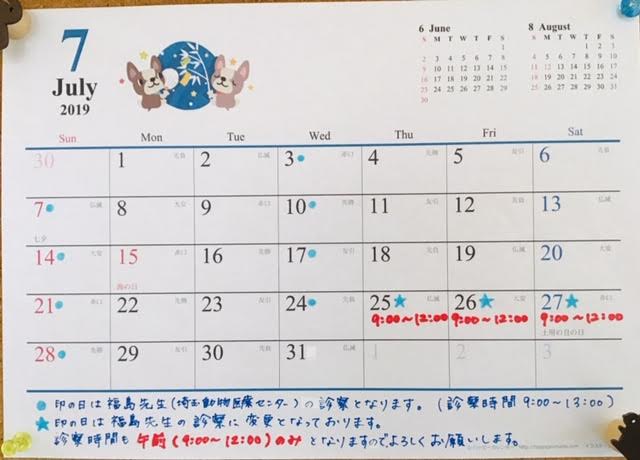 7
July
2019
6 June
S M T W T F S
1
2 3 4 5 6 7 8
9 10 11 12 13 14 15
16 17 18 19 20 21 22
23 24 25 26 27 28 29
30
8 August
S M T W T F S
1 2 3
4 5 6 7 8 9 10
11 12 13 14 15 16 17
18 19 20 21 22 23 24
25 26 27 28 29 30 31
Sun Mon Tue Wed Thu Fri Sat
30 1 先負 2 仏滅 3 赤口 4 先勝 5 友引 6 先負
7 仏滅 8 大安 9 赤口 10 先勝 11 友引 12 先負 13 仏滅
七夕
14 大安 15 赤口 16 先勝 17 友引 18 先負 19 仏滅 20 大安
海の日
21 赤口 22 先勝 23 友引 24 先負 25★ 仏滅 26★ 大安 27★ 赤口
9:00〜12:00 9:00〜12:00 9:00〜12:00
土用の丑の日
28 先勝 29 30 31 1 2 3
● 印の日は福島先生(埼玉動物医療センター)の診察となります。(診察時間 9:00〜13:00)
★ 印の日は福島先生の診察に変更となっております。
診察時間も午前(9:00〜12:00)のみとなりますのでよろしくお願いします。